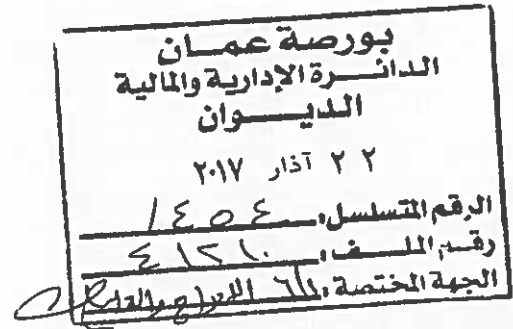 بورصة عمان
الدائرة الإدارية والمالية
الديوان
٢٢ آذار ٢٠١٧
الرقم المتسلسل: ١٤٥٤
رقم الملف: ٤١٢١٠
الجهة المختصة: